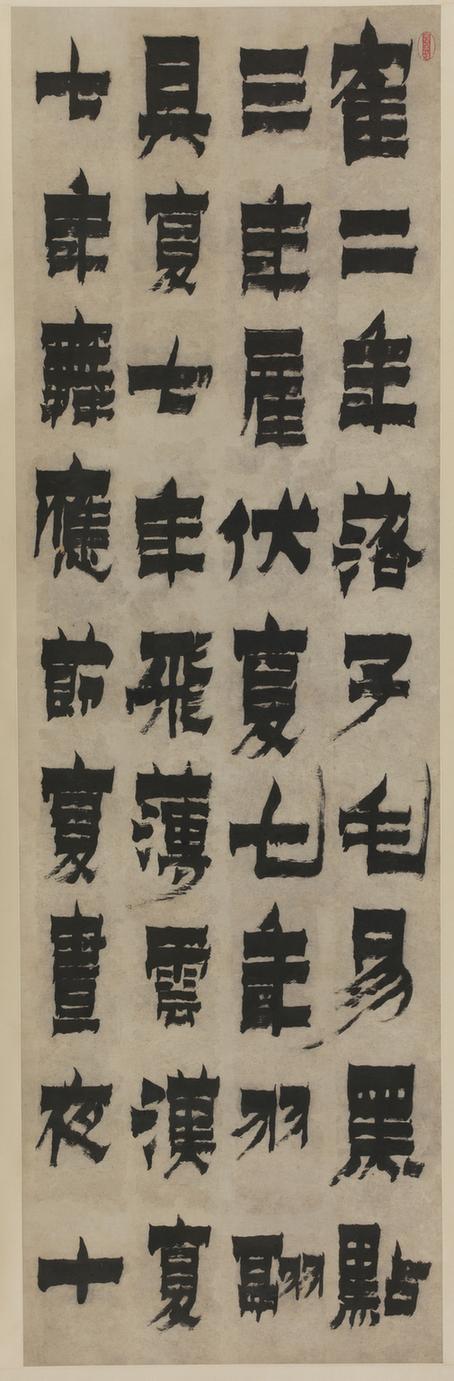 寉二年落子毛易黑點
三年雇伏夏七年羽翮
具夏七年飛薄雲漢夏
七年舞應節夏晝夜十